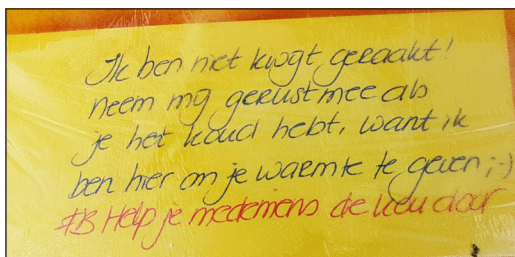 Ik ben niet kwijt geraakt!
neem mij gerust mee als
je het koud hebt, want ik
ben hier om je warmte te geven ;-)
#B Help je medemens de kou door